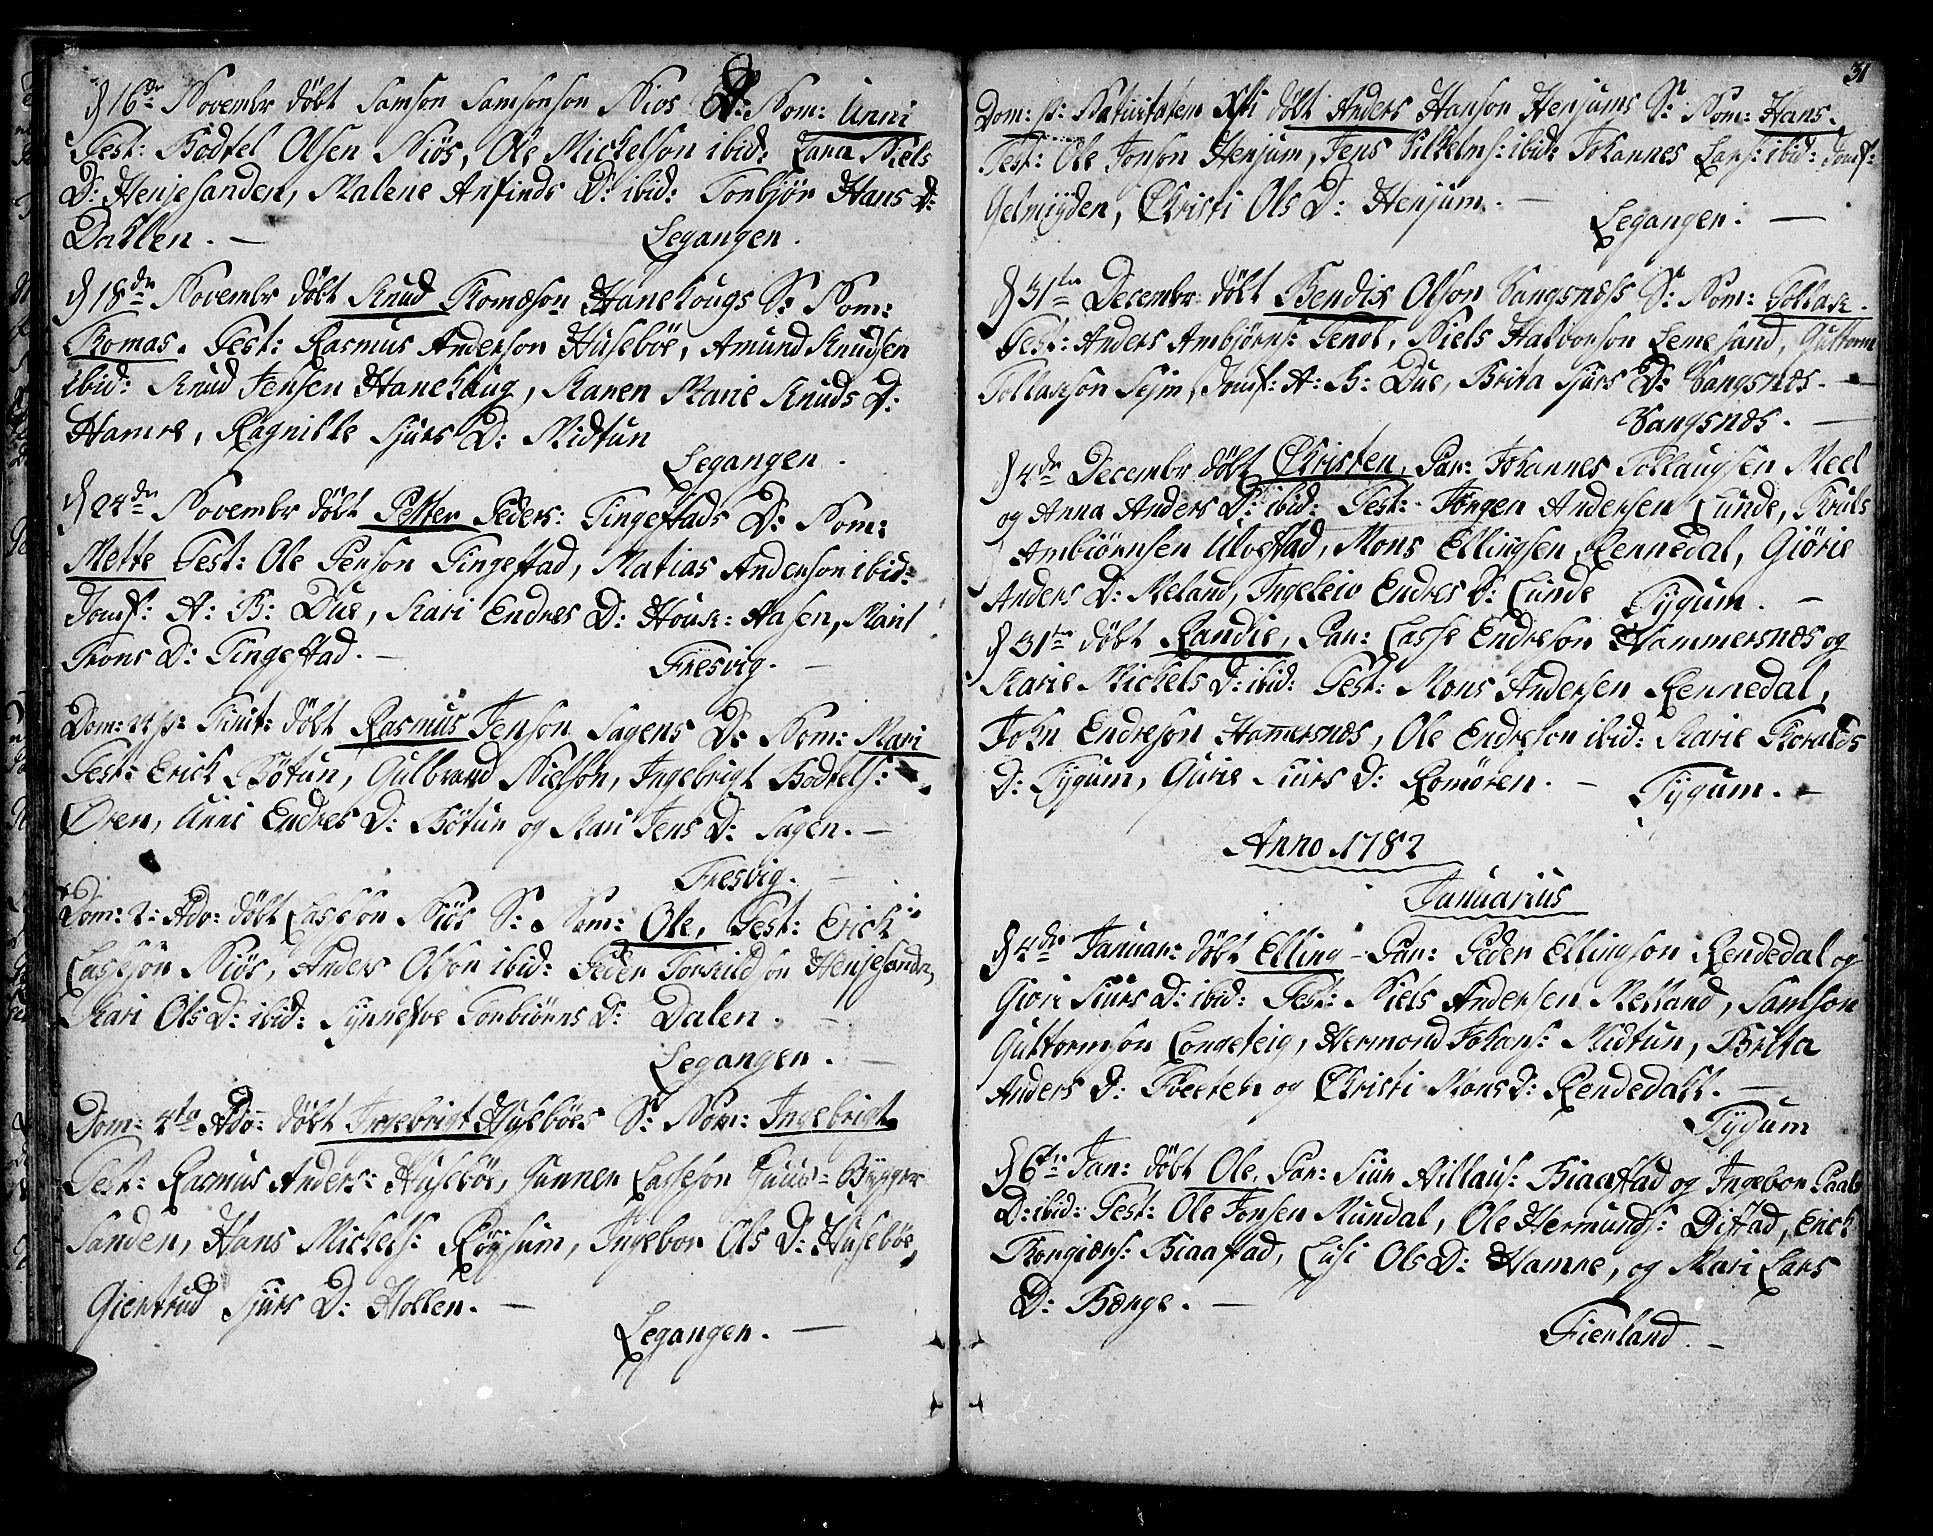 d 16de Novembr døbt Samson Samsonson Niøs D: Nom: Unni
Test: Bodtel Olsen Niøs, Ole Mickelson ibid: Lana Niels
D: Henjesanden, Malene Anfinds D: ibid: Torbjør Hans D:
Dahlen. —
Legangen.
d 18de Novembr døbt Knud Thomæson Hanehougs S: Nom:
Thomas. Test: Rasmus Anderson Husebøe, Amund Knudsen
ibid: Knud Jensen Hanehaug, Karen Marie Knuds D:
Hamre, Ragnille Sjurs D: Midtun
Legangen.
d 24de Novembr døbt Petter Peders: Tingestads D: Nom:
Mette Test: Ole Person Tingestad, Matias Anderson ibid:
Jomf: A: B: Due, Kari Endres D: House-Aasen, Marit
Trons D: Tingestad. —
Fresvig. —
Dom: 24 p: Trinit: døbt Rasmus Jenson Sagens D: Nom: Mari
Test: Erick Bøtun, Gulbrand Nielson, Ingebrigt Bodtels:
Øren, Unni Endres D: Bøtun og Kari Jens D: Sagen. —
Fresvig. —
Dom: 2: Adv: døbt Lasson Niøs S: Nom: Ole, Test: Erick
Lasseson Niøs, Anders Olson ibid: Peder Torkildson Henjesande,
Kari Ols D: ibid: Synneve Torbiørns D: Dalen. —
Legangen. —
Dom: 4ta Adv: døbt Ingebrigt Husebøes S: Nom: Ingebrigt
Test: Rasmus Anders: Husebøe, Gunner Lasseson Huus-Bygger
Sanden, Hans Mickels: Røysum, Ingebor Ols D: Husebøe,
Giertrud Sjurs D: Hollen. —
Legangen. —
31
Dom: p: Nativitatem Xsti døbt Anders Hanson Henjums S: Nom: Hans.
Test: Ole Jonson Henjum, Jens Vilhelms: ibid: Johannes Lars: ibid: Jomf:
Gelmuyden, Christi Ols D: Henjum. —
Legangen: —
d 31te Decembr døbt Bendix Olson Vangsness S: Nom: Tollak.
Test: Anders Ambjørns: Tenol, Niels Halvorson Lemesand, Guttorm
Tollakson Sejm, Jomf: A: B: Due, Brita Sjurs D: Vangsnæs. —
Vangsnæs. —
d 4de Decembr døbt Christen, Par: Johannes Tollaugsen Meel
og Anna Anders D: ibid: Test: Jørgen Andersen Lunde, Truls
Ambiørnsen Ulvestad, Mons Ellingsen Rennedal, Giørie
Anders D: Meland, Ingeleiv Endres D: Lunde
Tygum. —
d 31te døbt Randie, Par: Lasse Endreson Hammersnæs og
Marie Mickels D: ibid: Test: Mons Andersen Rennedal,
John Endreson Hamersnæs, Ole Endreson ibid: Karie Thoralds
D: Tygum, Gurie Siurs D: Romøren. —
Tygum. —
Anno 1782
Januarius
d 4de Januar: døbt Elling – Par: Peder Ellingson Rendedal og
Giøri Siurs D: ibid: Test: Niels Andersen Melland, Samson
Guttormson Longeteig, Hermond Johans: Midtun, Britta
Anders D: Tveeten og Christi Mons D: Rendedall. —
Tygum
d 6te Jan: døbt Ole, Par: Siur Villaus: Biaastad og Ingebor Paals
D: ibid: Test: Ole Jonsen Mundal, Ole Hermunds: Distad, Erick
Thorgiærs: Biaastad, Lusi Ols D: Hamre, og Mari Lars
D: Berge. —
Fierland. —